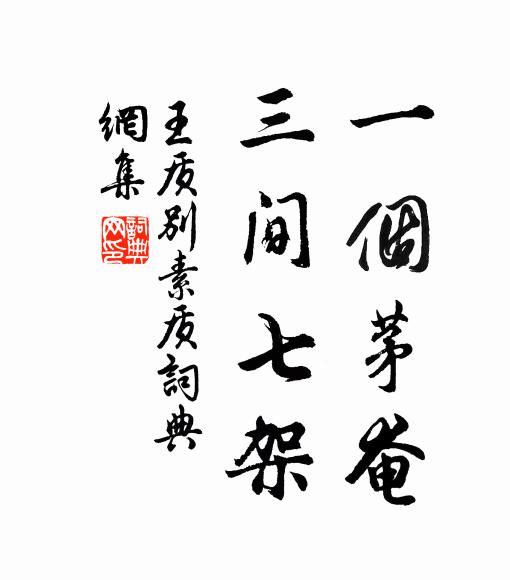 一個茅奄
三間七架
王质别素质詞典
網集
詞典
网印